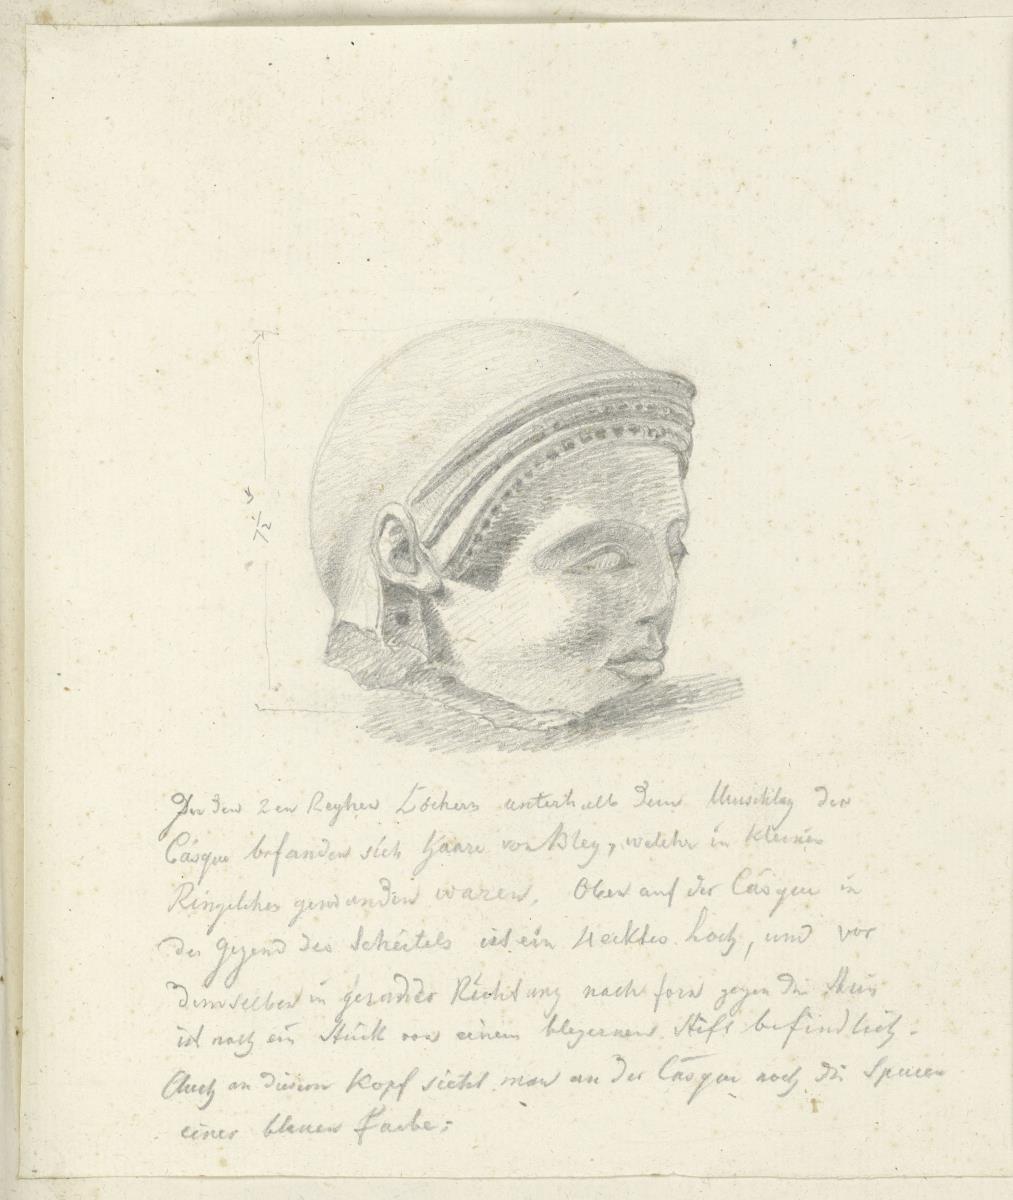 9 1/2
In den 2en Reyhen Löchers unterhalb dem Umschlag der
Casque befanden sich Haare von Bley, welche in kleinen
Ringelchen gewunden waren. Oben auf der Casque in
der Gegend des Scheitels ist ein 4ecktes Loch, und vor
demselben in gerader Richtung nach forn gegen die Stirn
ist noch ein Stück von einem bleyernen Stift befindlich.
Auch an diesem Kopf sieht man an der Casque noch die Spuren
einer blauen Farbe.